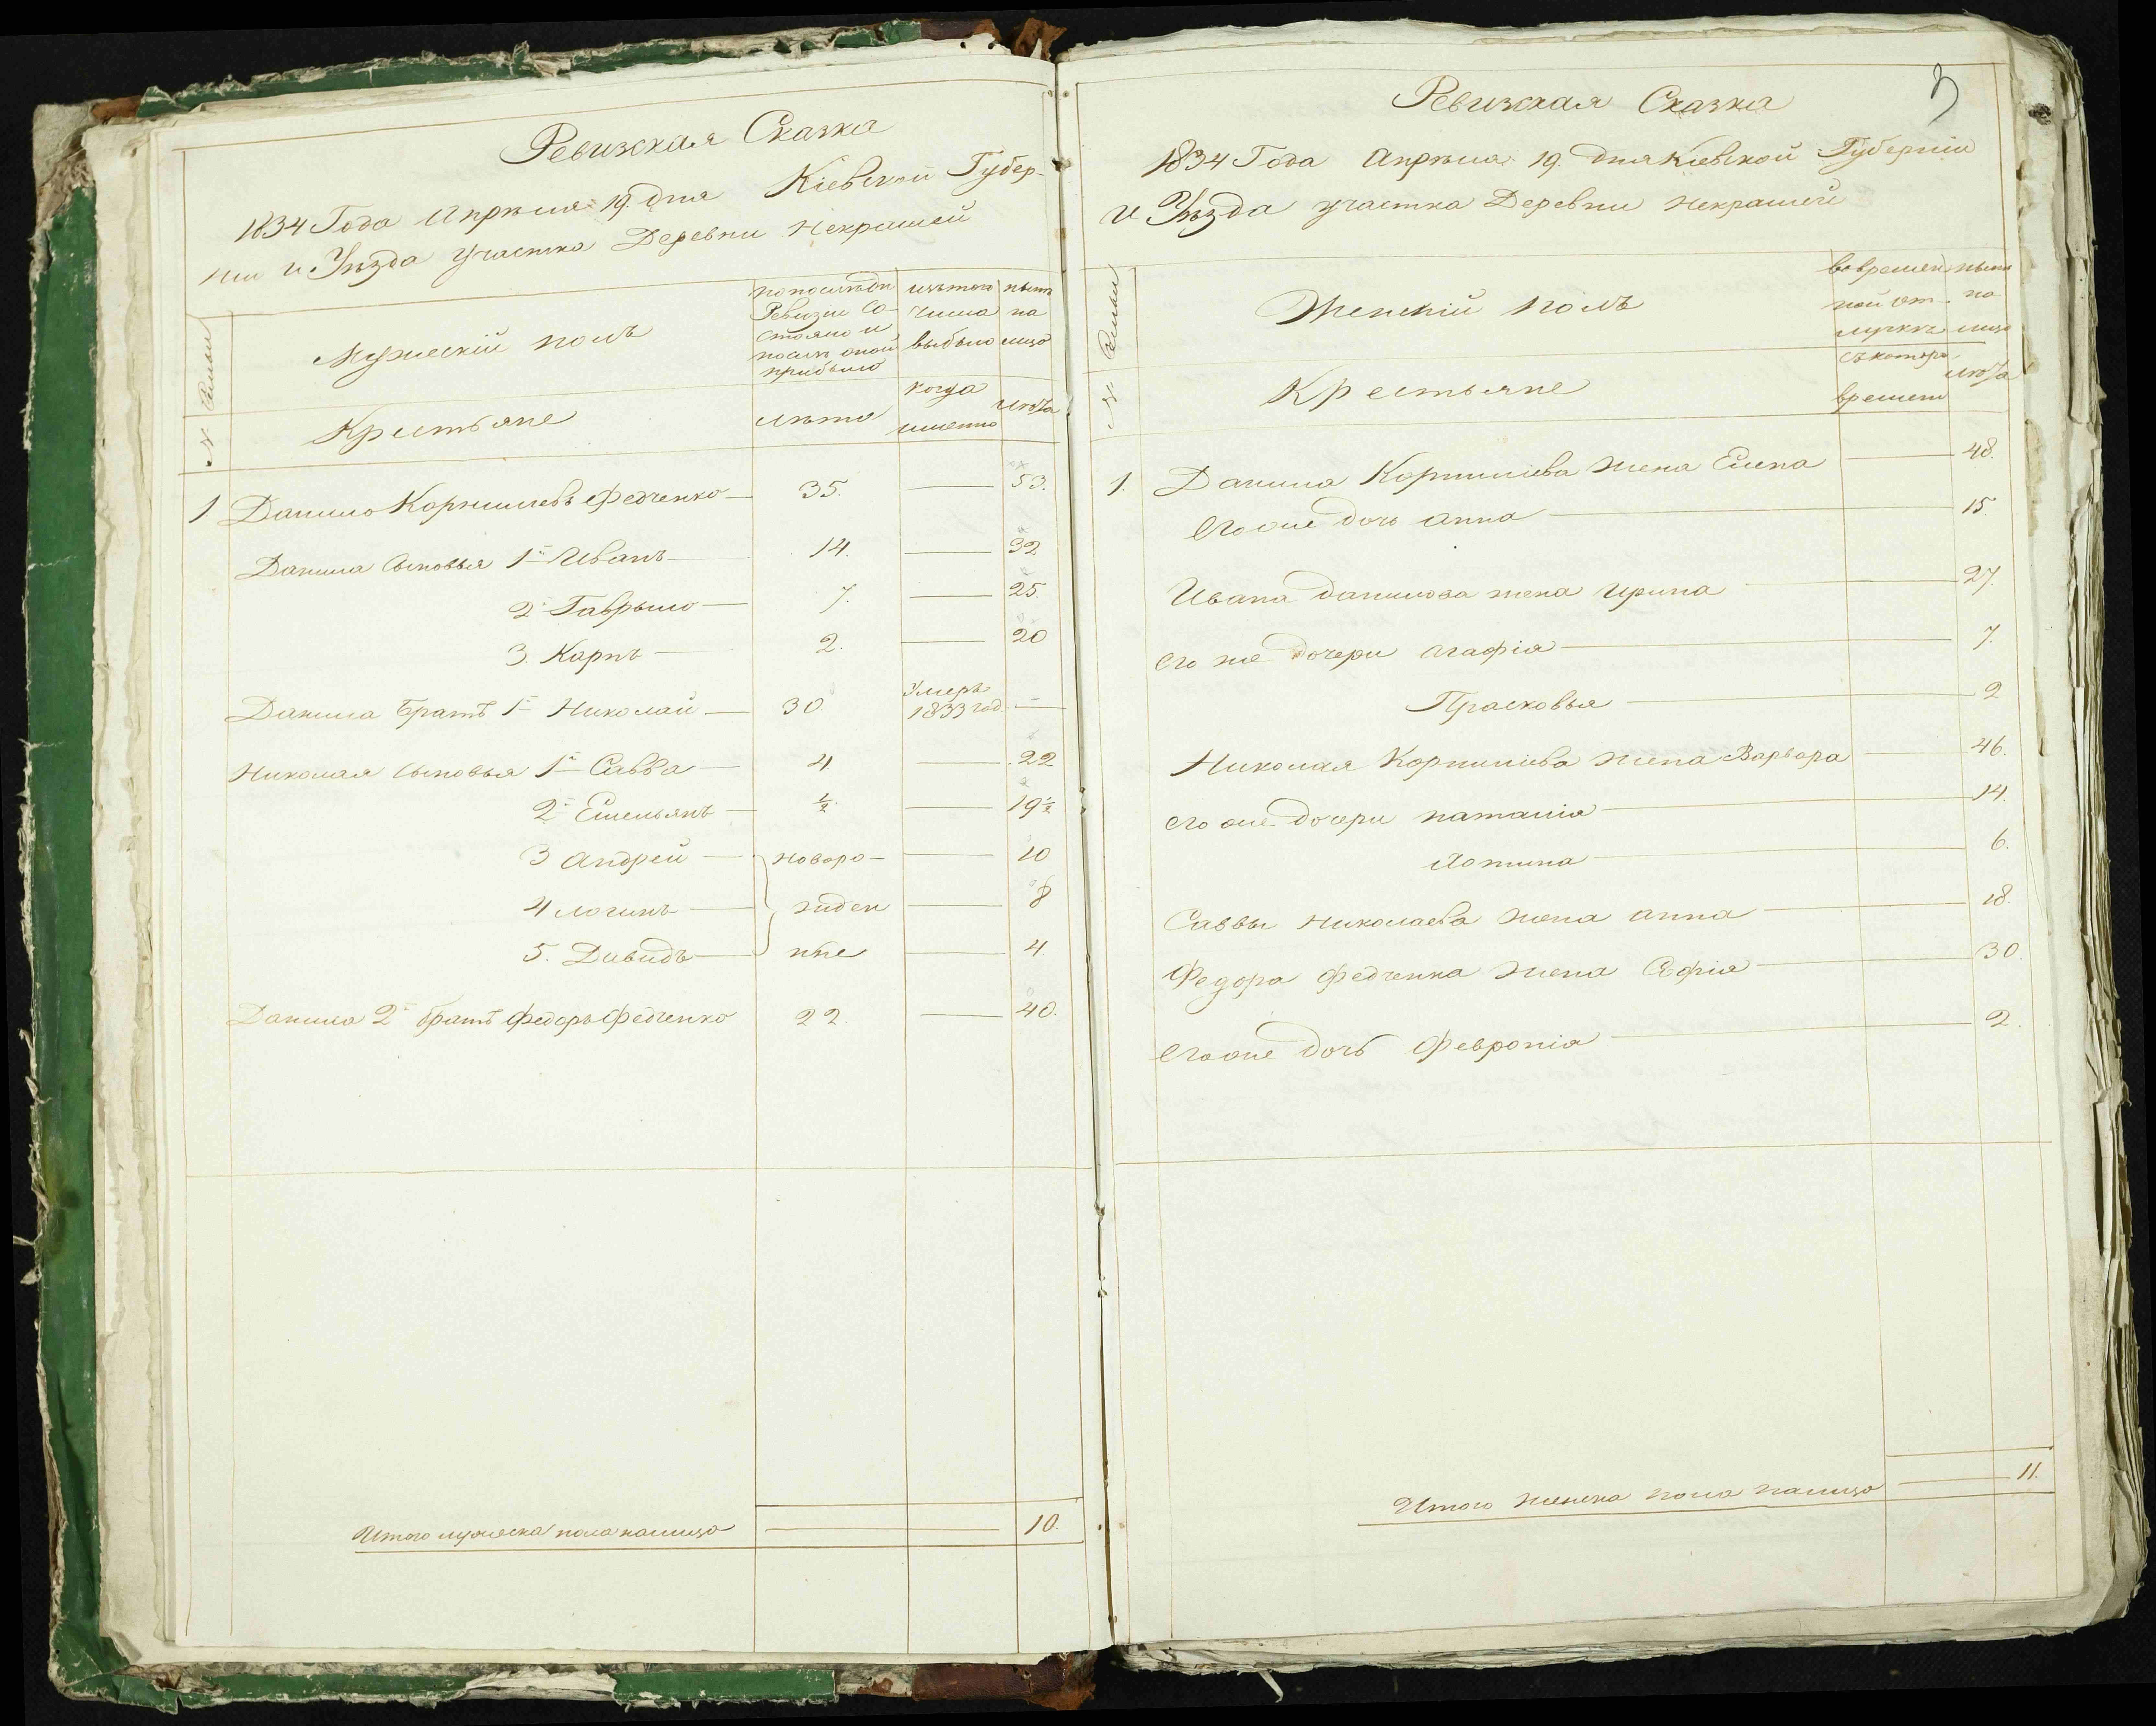 Ревизская Сказка
1834 Года Апрѣля 19. дня Кіевской Губер-
ніи и Уѣзда Участка Деревни Некрашей
№ Семьи
Мужескій полъ
по послѣдн
Ревизіи со-
стояло и
послѣ оной
прибыло
изъ того
числа
выбыло
нынѣ
на
лицо
Крестьяне
лѣта
когда
именно
лѣта
1 Данило Корнилієвъ Федченко 35. 53.
Данила Сыновья 1й Иванъ 14. 32
2й Гаврыло 7. 25.
3. Карпъ 2. 20
Данила Братъ 1й Николай 30. Умеръ 1833 год.
Николая Сыновья 1й Савва 4 22
2й Емельянъ ½ 19½
3 Андрей новоро- 10
4 Логинъ жден 8
5. Давидъ ные 4
Данила 2й братъ Федоръ Федченко 22. 40.
Итого мужеска пола налицо 10.
3
Ревизская Сказка
1834 Года Апрѣля 19. дня Кіевской Губерніи
и Уѣзда участка Деревни Некрашей
№ Семьи
Женскій полъ
во времен
ной от-
лучкѣ
нынѣ
на
лицо
Крестьяне
съ котора
времени
лѣта
1. Данила Корнилієва жена Елена 48.
Его же дочь Анна 15.
Ивана Данилова жена Ирина 27.
Его же дочери Агафія 7.
Прасковья 2
Николая Корнилієва жена Варвара 46.
Его же дочери Наталія 14.
6.
Саввы Николаева жена Анна 18.
Федора Федченка жена Софія 30.
Его же дочь Февронія 2.
Итого женска пола налицо 11.